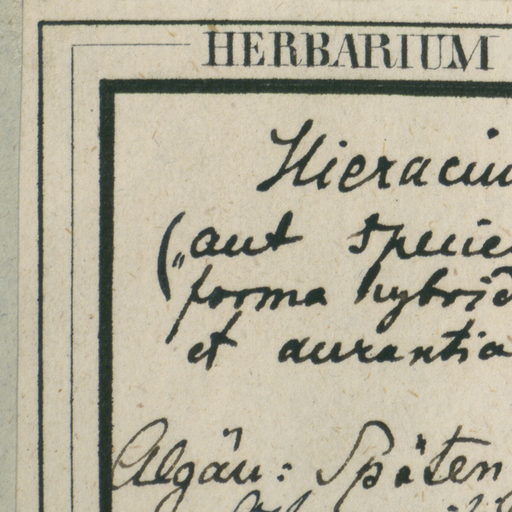 HERBARIUM
Hieraciu
(„aut specie
forma hybrid
et aurantia
Algäu: Späten